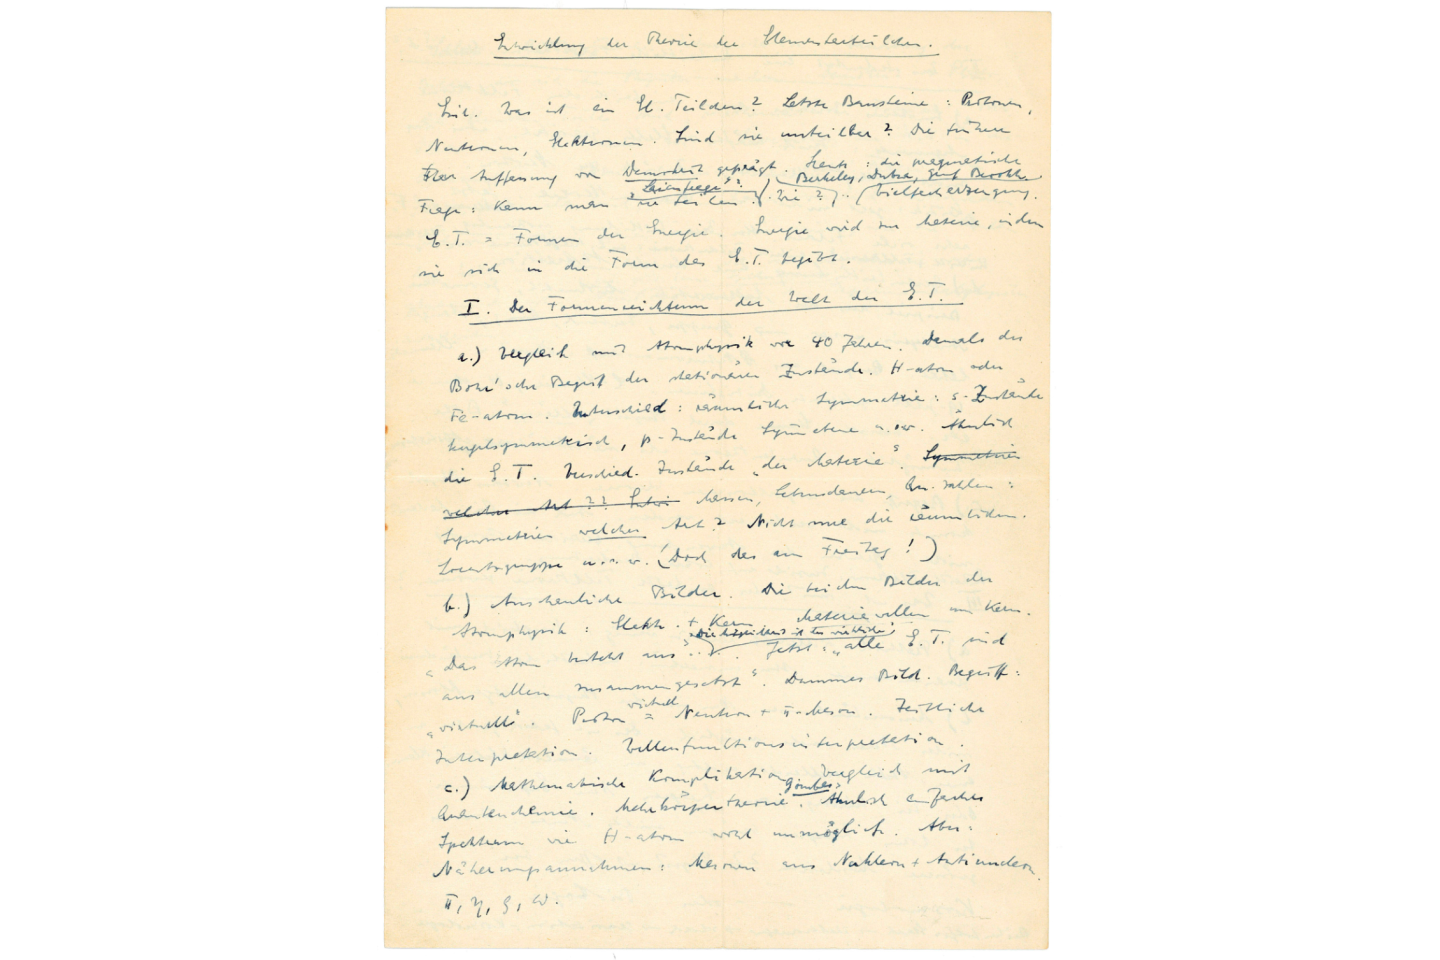 Entwicklung der Theorie der Elementarteilchen.
Einl. Was ist ein El. Teilchen? Letzte Bausteine: Protonen,
Neutronen, Elektronen. Sind sie unteilbar? Die frühere
Auffassung von Demokrit geprägt. Heute: die pragmatische
Berkeley, Dubna, Genf
"Laienfrage":
Frage: Kann man sie teilen? Wie? Vielfacherzeugung.
E.T. = Formen der Energie. Energie wird zur Materie, indem
sie sich in die Form des E.T. begibt.
I. Der Formenreichtum der Welt der E.T.
a.) Vergleich mit Atomphysik vor 40 Jahren. Damals der
Bohr'sche Begriff der stationären Zustände. H-atom oder
Fe-atom. Unterschied: räumliche Symmetrie: s-Zustände
kugelsymmetrisch, p-Zustände u.s.w. Ähnlich
die E.T. Verschied. Zustände "der Materie". Symmetrien
welcher Art?? Massen, Lebensdauern, Qu. zahlen:
Symmetrien welcher Art? Nicht nur die räumlichen.
Lorentzgruppe u.s.w. (Doch das am Freitag!)
b.) Anschauliche Bilder. Die beiden Bilder der
Atomphysik: Elektr. + Kern Materiewellen um Kern.
"Das Atom besteht aus". Jetzt: "alle E.T. sind
aus allen zusammengesetzt". Dummes Bild. Begriff:
virtuell
"virtuell". Proton = Neutron + π-Meson. Zeitliche
Interpretation. Wellenfunktionsinterpretation.
c.) Mathematische Komplikation Vergleich mit
Gombas
Quantenchemie. Mehrkörpertheorie. Ähnlich einfaches
Spektrum wie H-atom wohl unmöglich. Aber:
Näherungsannahmen: Mesonen aus Nukleon + Antinukleon.
π, η, ρ, ω.